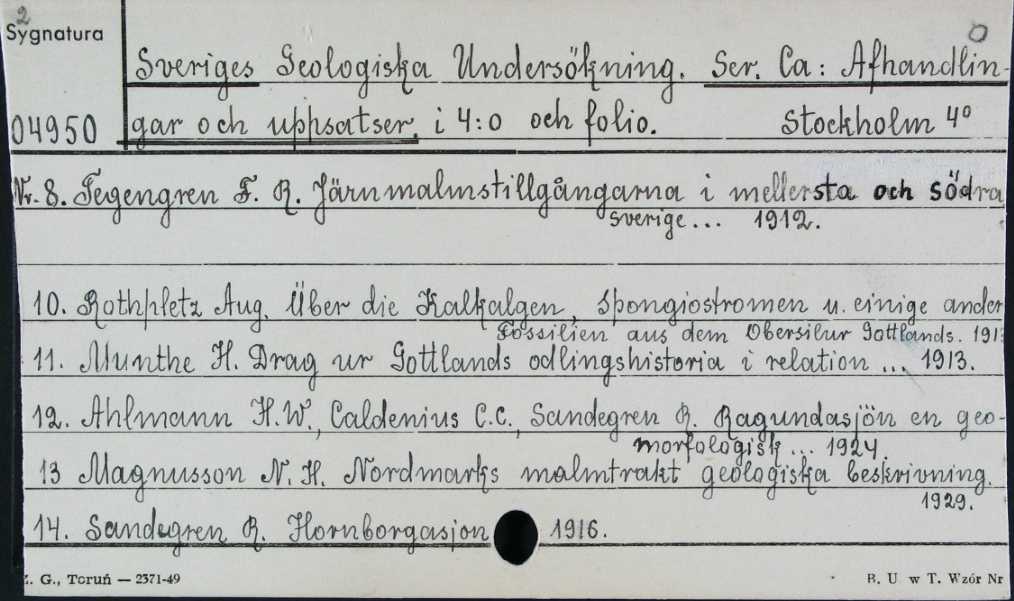 2
Sygnatura
04950
O
Sveriges Geologiska Undersökning. Ser. Ca: Afhandlin-
gar och uppsatser. i 4:0 och folio. Stockholm 4°
Nr. 8. Tegengren F. R. Järnmalmstillgångarna i mellersta och södra
Sverige... 1912.
10. Rothpletz Aug. Über die Kalkalgen, Spongiostromen u. einige ander
Fossilien aus dem Obersilur Gottlands. 191
11. Munthe H. Drag ur Gottlands odlingshistoria i relation ... 1913.
12. Ahlmann H.W., Caldenius C.C., Sandegren R. Ragundasjön en geo-
morfologisk... 1924.
13 Magnusson N. H. Nordmarks malmtrakt geologiska beskrivning.
1929.
14. Sandegren R. Hornborgasjon 1916.
Z. G., Toruń — 2371-49
B. U w T. Wzór Nr